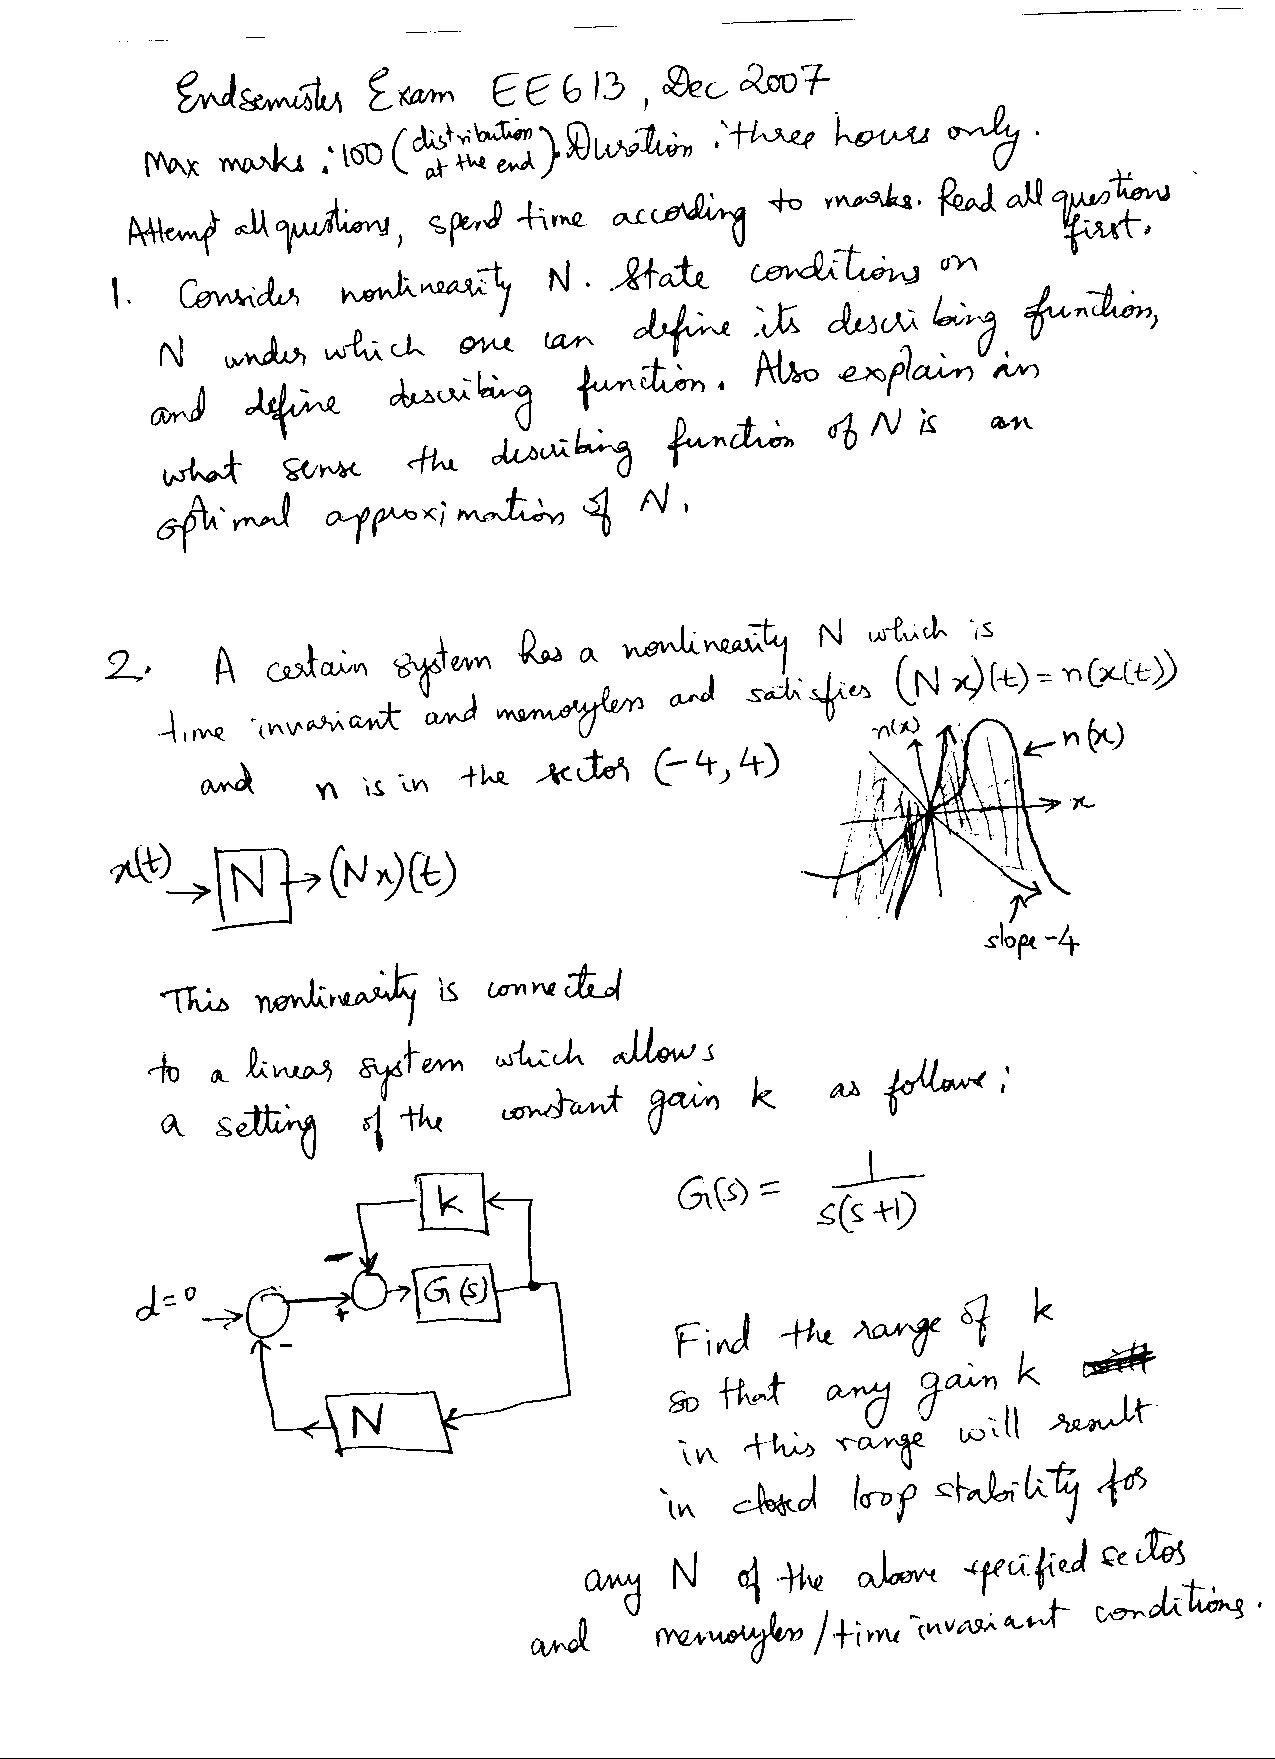 Endsemester Exam EE613, Dec 2007
Max marks : 100 (distribution at the end). Duration : three hours only.
Attempt all questions, spend time according to marks. Read all questions first.
1. Consider nonlinearity N. State conditions on
N under which one can define its describing function,
and define describing function. Also explain in
what sense the describing function of N is an
optimal approximation of N.
2. A certain system has a nonlinearity N which is
time invariant and memoryless and satisfies (Nx)(t) = n(x(t))
and n is in the sector (-4,4)
n(x)
n(x)
x
slope -4
x(t) N (Nx)(t)
This nonlinearity is connected
to a linear system which allows
a setting of the constant gain k as follows:
G(s) = 1/s(s+1)
k
-
d=0
+
G(s)
-
N
Find the range of k
so that any gain k
in this range will result
in closed loop stability for
any N of the above specified sector
and memoryless/time invariant conditions.